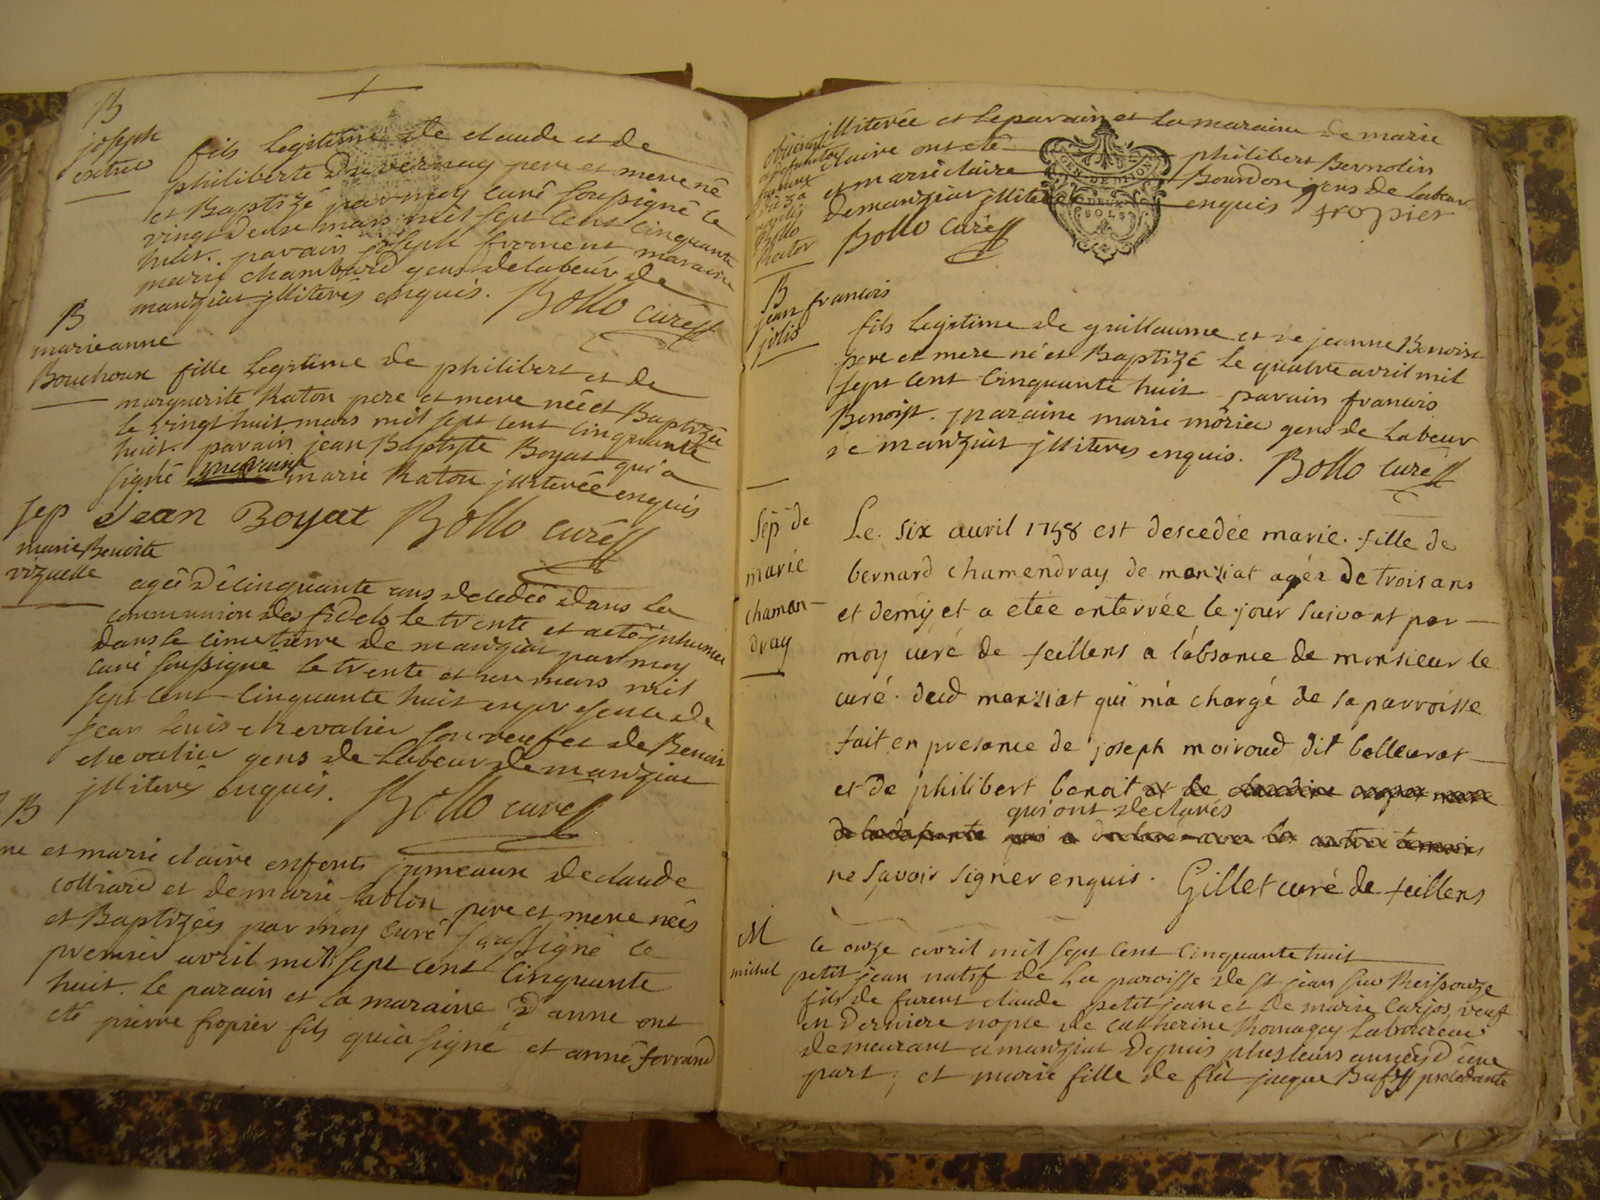 B
joseph
fils legitime de claude et de
philiberte Duvernay pere et mere né
et Baptizé par moy curé soussigné le
vingt deux mars mil sept cent cinquante
huit. parain joseph froment maraine
marie chambard gens de labeur de
manziat jlliterés enquis. Bollo curé
B
marieanne
Bouchoux fille legitime de philibert et de
marguerite Raton pere et mere née et Baptizée
le vingt huit mars mil sept cent cinquante
huit. parain jean Baptiste Boyat qui a
signé maraine marie Raton jliterée enquis
Jean Boyat Bollo curé
Sep
marie Benoite
vizuelle
agée de cinquante ans decedée dans la
communion des fidels le trente et a eté jnhumée
dans le cimetierre de manziat par moy
curé soussigné le trente et un mars mil
sept cent cinquante huit en presence de
jean louis chevalier son veuf et de Benoit
chevalier gens de labeur de manziat
jlliterés enquis. Bollo curé
B
et marie claire enfents jumeaux de claude
colliard et de marie sablon pere et mere nées
et Baptizées par moy curé soussigné le
premier avril mil sept cent cinquante
huit. le parain et la maraine d'anne ont
eté pierre fropier fils qui a signé et anne ferrand
jlliterée et le parain et la maraine de marie
claire ont eté philibert Bernolin
et marie claire Bourdon gens de labeur
de manziat jlliterés enquis fropier
Bollo curé
B
jean francois
jolis
fils legitime de guillaume et de jeanne Benoist
pere et mere né et Baptizé le quatre avril mil
sept cent cinquante huit parain francois
Benoist. maraine marie morier gens de labeur
de manziat jlliteres enquis. Bollo curé
Sep de
marie
chaman-
dray
Le six avril 1758 est descedée marie fille de
bernard chamendray de manziat agée de trois ans
et demy et a etee enterrée le jour suivant par
moy curé de feillens a l'absance de monsieur le
curé dud manziat qui m'a chargé de sa parroisse
fait en presance de joseph moiroud dit belleurat
et de philibert benoit
qui ont declarés
ne savoir signer enquis. Gillet curé de feillens
M
michel
le onze avril mil sept cent cinquante huit
petit jean natif de la paroisse de st jean sur Reissouze
fils de furent claude petit jean et de marie carjos, veuf
en derniere nopce de catherine Romagay laboureur
demeurant a manziat depuis plusieurs années d'une
part; et marie fille de fût jacque Buffy